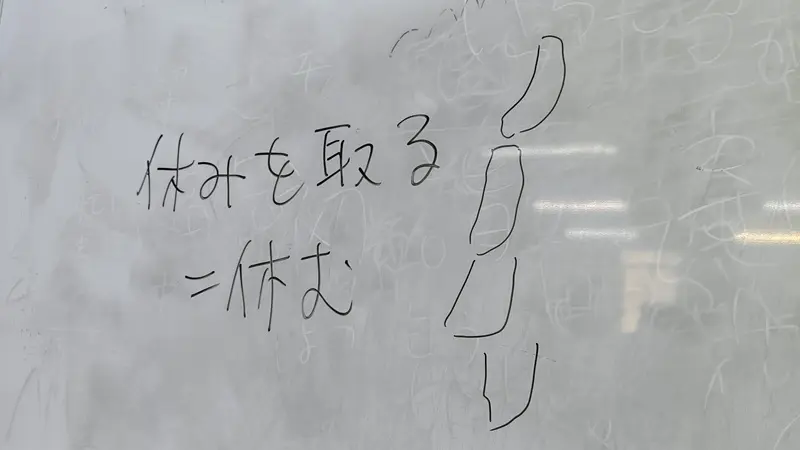 休みを取る
=休む